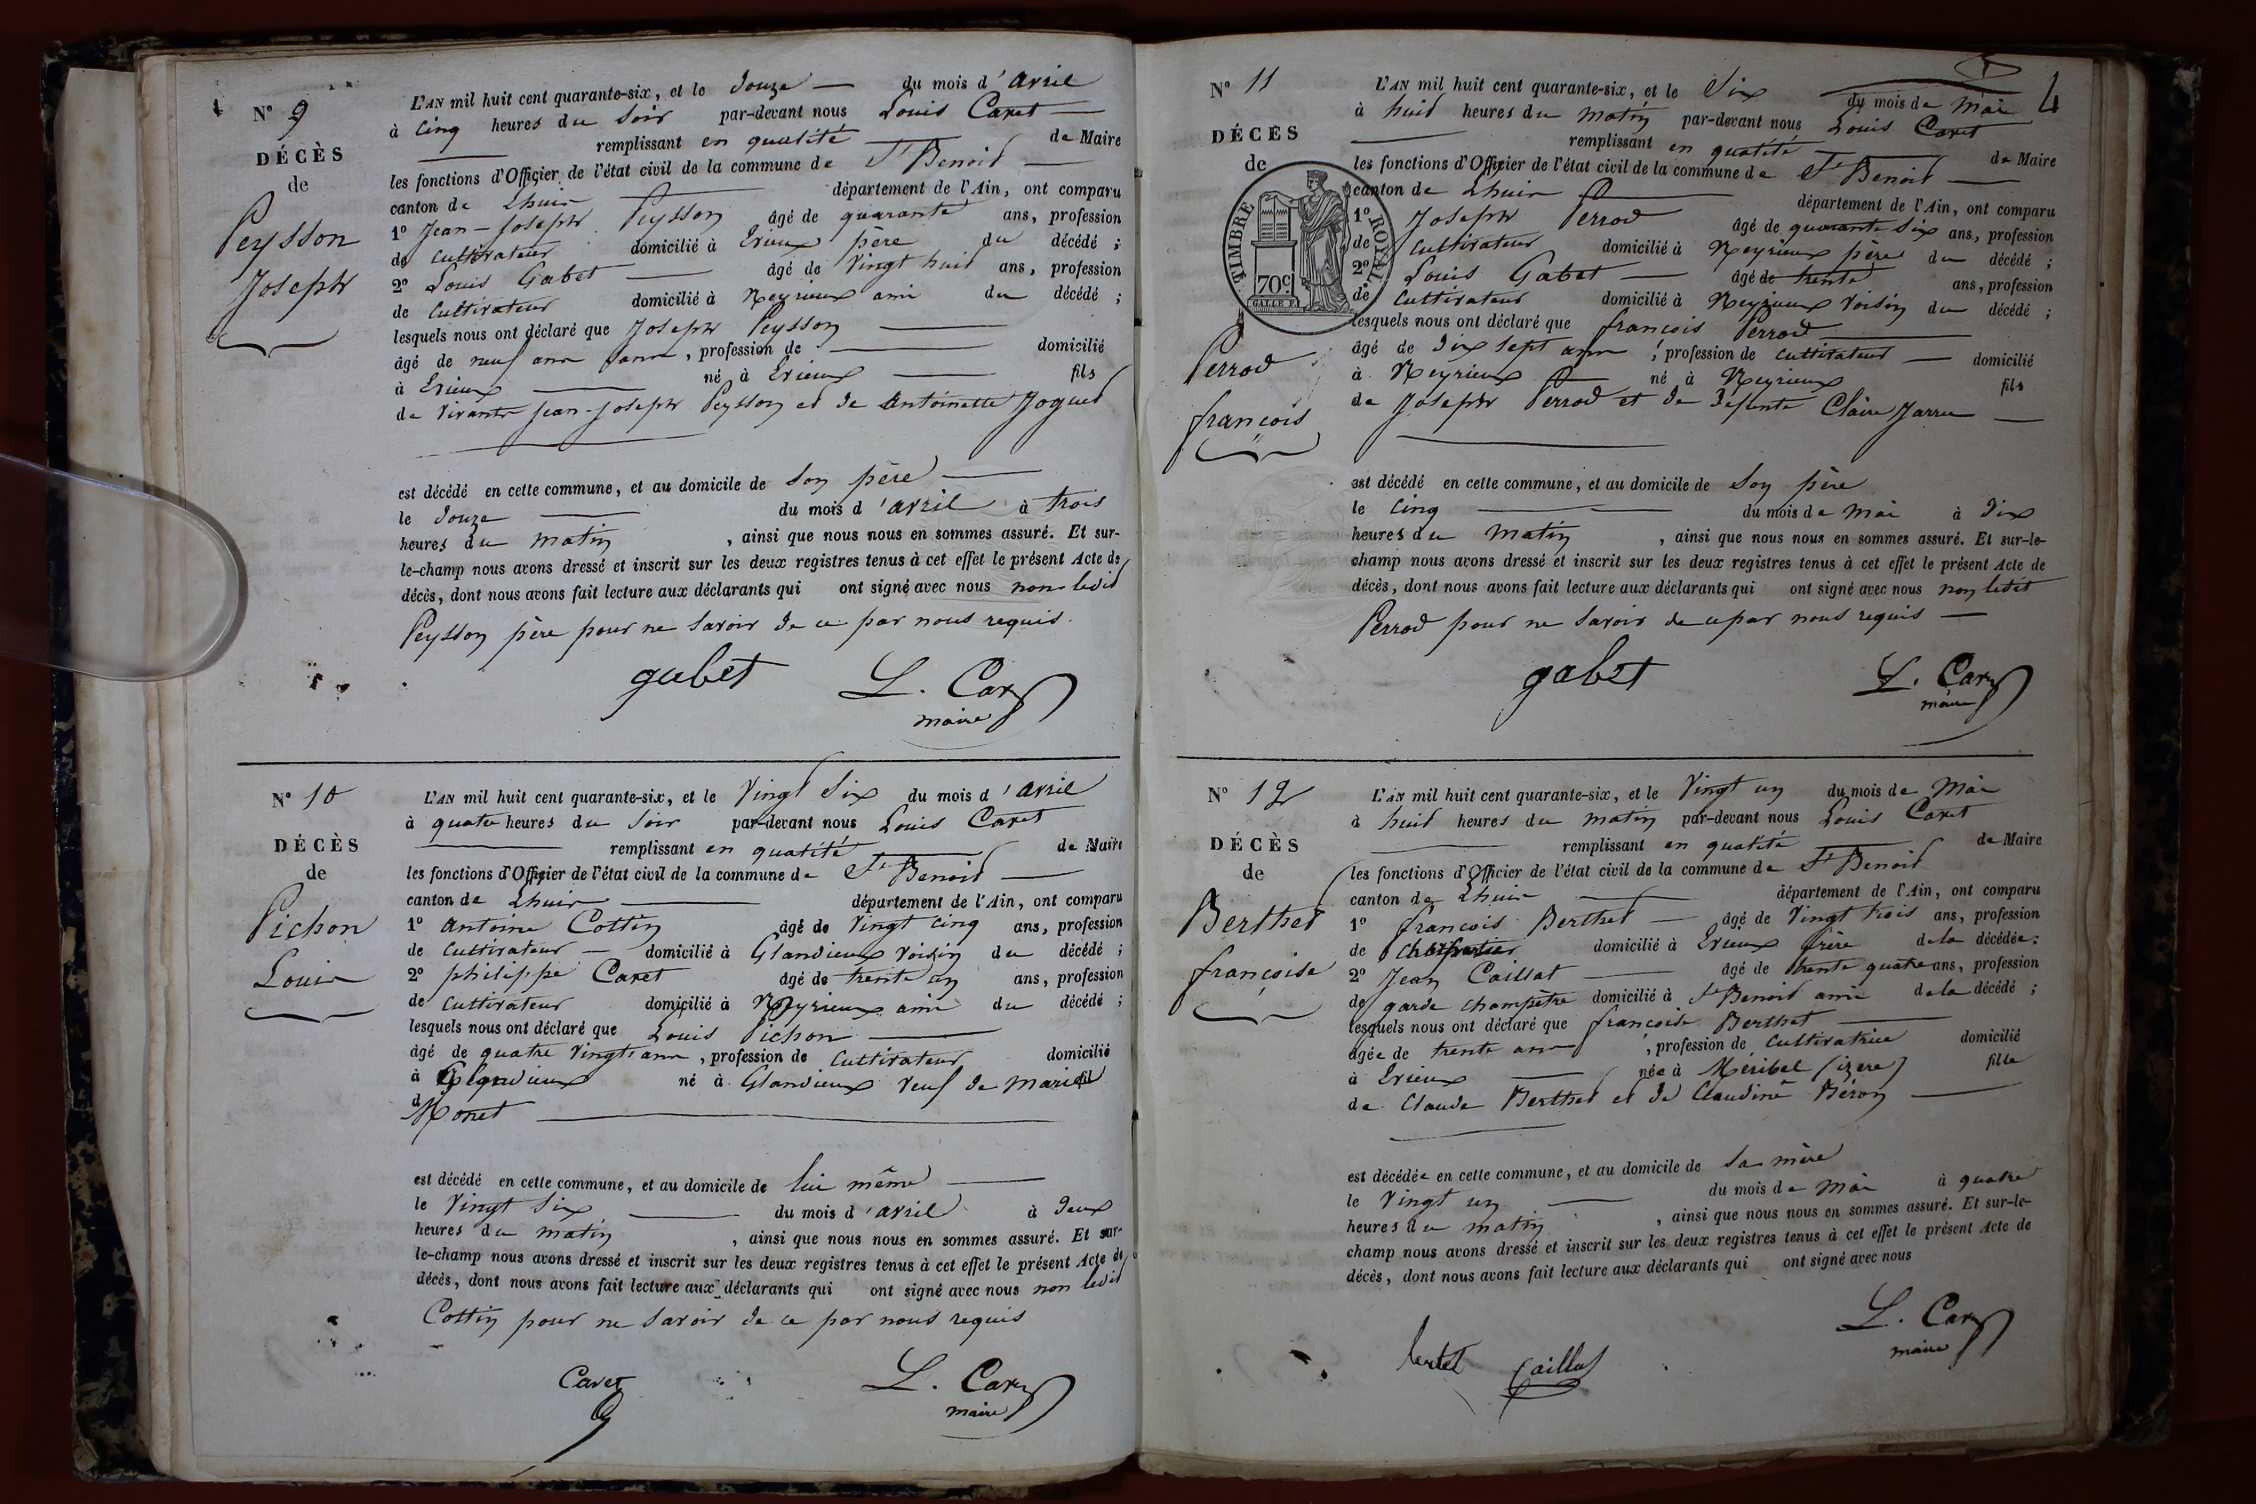 N° 9
DÉCÈS
de
Peysson
Joseph
L'AN mil huit cent quarante-six, et le douze du mois d'avril
à cinq heures du soir par-devant nous Louis Caret
remplissant en qualité de Maire
les fonctions d'Officier de l'état civil de la commune de St Benoit
canton de Lhuis département de l'Ain, ont comparu
1° Jean-Joseph Peysson âgé de quarante ans, profession
de cultivateur domicilié à Evieux père du décédé ;
2° Louis Gabet âgé de vingt huit ans, profession
de cultivateur domicilié à Neyrieux ami du décédé ;
lesquels nous ont déclaré que Joseph Peysson
âgé de neuf ans sans, profession de domicilié
à Evieux né à Evieux fils
de vivants Jean-Joseph Peysson et de Antoinette Joguet
est décédé en cette commune, et au domicile de son père
le douze du mois d'avril à trois
heures du matin, ainsi que nous nous en sommes assuré. Et sur-
le-champ nous avons dressé et inscrit sur les deux registres tenus à cet effet le présent Acte de
décès, dont nous avons fait lecture aux déclarants qui ont signé avec nous non ledit
Peysson père pour ne savoir de ce par nous requis.
gabet L. Caret
maire
N° 10
DÉCÈS
de
Pichon
Louis
L'AN mil huit cent quarante-six, et le vingt six du mois d'avril
à quatre heures du soir par-devant nous Louis Caret
remplissant en qualité de Maire
les fonctions d'Officier de l'état civil de la commune de St Benoit
canton de Lhuis département de l'Ain, ont comparu
1° antoine Cottin âgé de vingt cinq ans, profession
de cultivateur domicilié à Glandieux voisin du décédé ;
2° philippe Caret âgé de trente un ans, profession
de cultivateur domicilié à Neyrieux ami du décédé ;
lesquels nous ont déclaré que Louis Pichon
âgé de quatre vingts ans, profession de cultivateur domicilié
à Glandieux né à Glandieux veuf de marie fil
d
Monet
est décédé en cette commune, et au domicile de lui même
le vingt six du mois d'avril à deux
heures du matin, ainsi que nous nous en sommes assuré. Et sur-
le-champ nous avons dressé et inscrit sur les deux registres tenus à cet effet le présent Acte de
décès, dont nous avons fait lecture aux déclarants qui ont signé avec nous non ledit
Cottin pour ne savoir de ce par nous requis
Caret L. Caret
maire
4
N° 11
DÉCÈS
de
TIMBRE ROYAL
70c
GALLE F.
Perrod
françois
L'AN mil huit cent quarante-six, et le six du mois de mai
à huit heures du matin par-devant nous Louis Caret
remplissant en qualité de Maire
les fonctions d'Officier de l'état civil de la commune de St Benoit
canton de Lhuis département de l'Ain, ont comparu
1° Joseph Perrod âgé de quarante six ans, profession
de cultivateur domicilié à Neyrieux père du décédé ;
2° Louis Gabet âgé de trente ans, profession
de cultivateur domicilié à Neyrieux voisin du décédé ;
lesquels nous ont déclaré que françois Perrod
âgé de dix sept ans, profession de cultivateur domicilié
à Neyrieux né à Neyrieux fils
de Joseph Perrod et de défunte Claire Jarru
est décédé en cette commune, et au domicile de son père
le cinq du mois de mai à dix
heures du matin, ainsi que nous nous en sommes assuré. Et sur-le-
champ nous avons dressé et inscrit sur les deux registres tenus à cet effet le présent Acte de
décès, dont nous avons fait lecture aux déclarants qui ont signé avec nous non ledit
Perrod pour ne savoir de ce par nous requis
gabet L. Caret
maire
N° 12
DÉCÈS
de
Berthet
françoise
L'AN mil huit cent quarante-six, et le vingt un du mois de mai
à huit heures du matin par-devant nous Louis Caret
remplissant en qualité de Maire
les fonctions d'Officier de l'état civil de la commune de St Benoit
canton de Lhuis département de l'Ain, ont comparu
1° françois Berthet âgé de vingt trois ans, profession
de charpentier domicilié à Evieux frère de la décédée ;
2° Jean Caillat âgé de trente quatre ans, profession
de garde champêtre domicilié à St Benoit ami de la décédé ;
lesquels nous ont déclaré que françoise Berthet
âgée de trente ans, profession de cultivatrice domicilié
à Evieux née à Méribel (izere) fille
de Claude Berthet et de Claudine Béron
est décédée en cette commune, et au domicile de sa mère
le vingt un du mois de mai à quatre
heures du matin, ainsi que nous nous en sommes assuré. Et sur-le-
champ nous avons dressé et inscrit sur les deux registres tenus à cet effet le présent Acte de
décès, dont nous avons fait lecture aux déclarants qui ont signé avec nous
L. Caret
maire
bertet Caillat